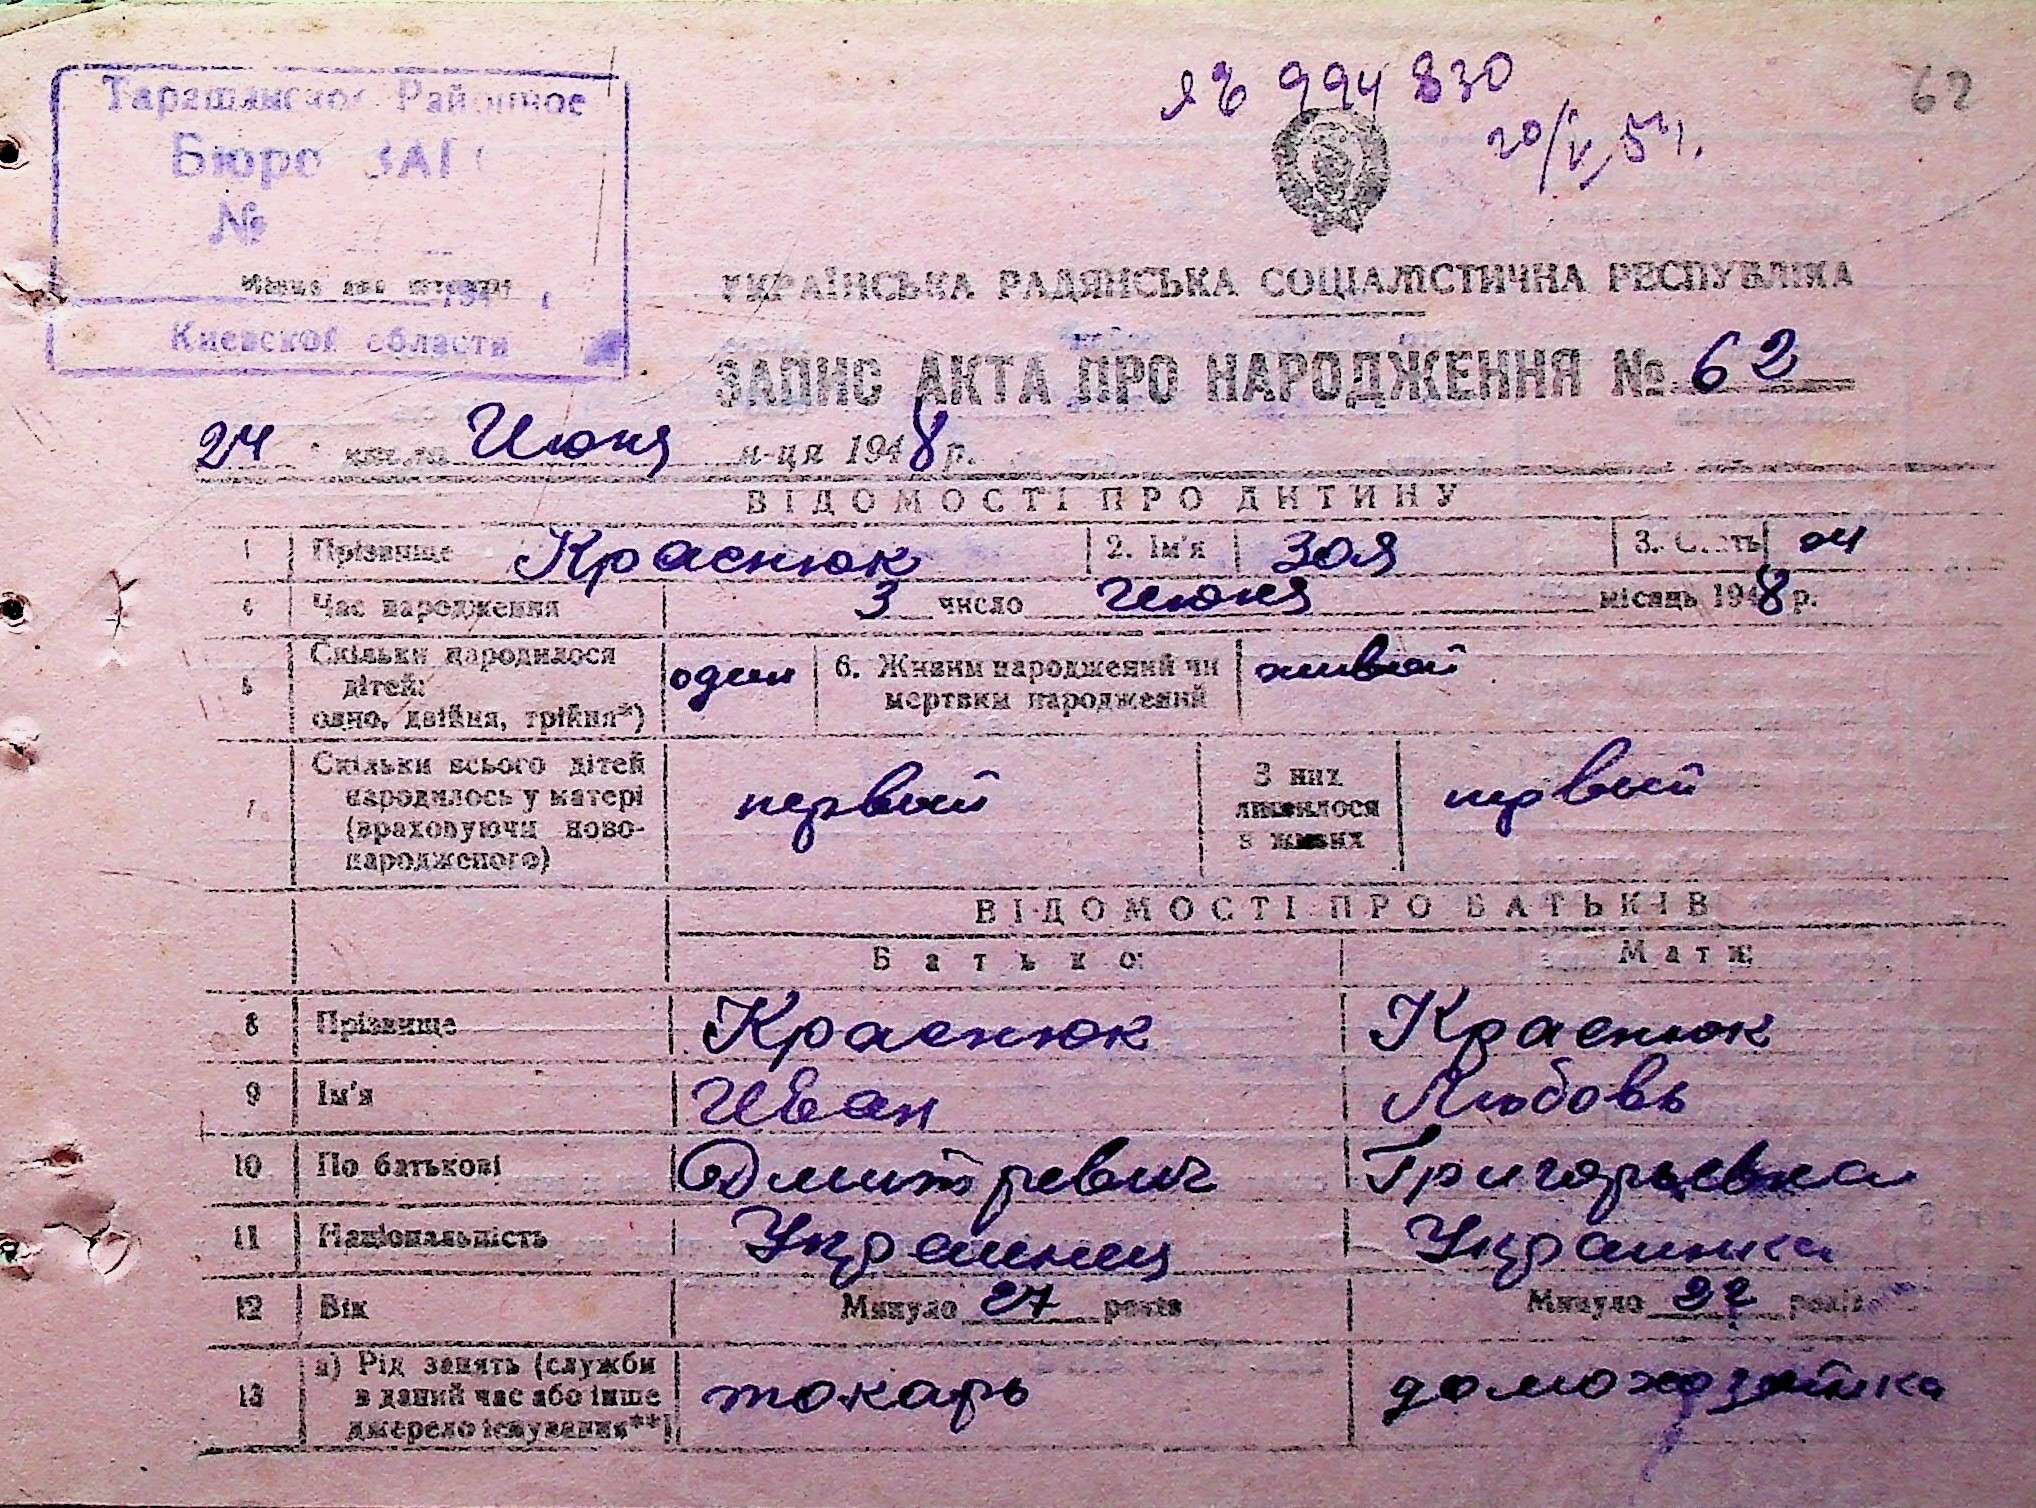 Таращанское Районное
Бюро ЗАГС
№
Киевской области
ЯБ 994830
20/V 54.
62
УКРАЇНСЬКА РАДЯНСЬКА СОЦІАЛІСТИЧНА РЕСПУБЛІКА
ЗАПИС АКТА ПРО НАРОДЖЕННЯ № 62
24 числа Июня м-ця 1948 р.
ВІДОМОСТІ ПРО ДИТИНУ
1 Прізвище Краснюк 2. Ім'я Зоя 3. Стать
4 Час народження 3 число Июня місяць 1948 р.
5 Скільки народилося дітей: одно, двійня, трійня*) один 6. Живим народжений чи мертвим народжений живой
7. Скільки всього дітей народилось у матері (враховуючи новонародженого) первый З них лишилося в живих первый
ВІДОМОСТІ ПРО БАТЬКІВ
Батько: Мати:
8 Прізвище Краснюк Краснюк
9 Ім'я Иван Любовь
10 По батькові Дмитревич Григорьевна
11 Національність Украинец Украинка
12 Вік Минуло 27 років Минуло 22 років
13 а) Рід занять (служби в даний час або інше джерело існування**) токарь домохозяйка